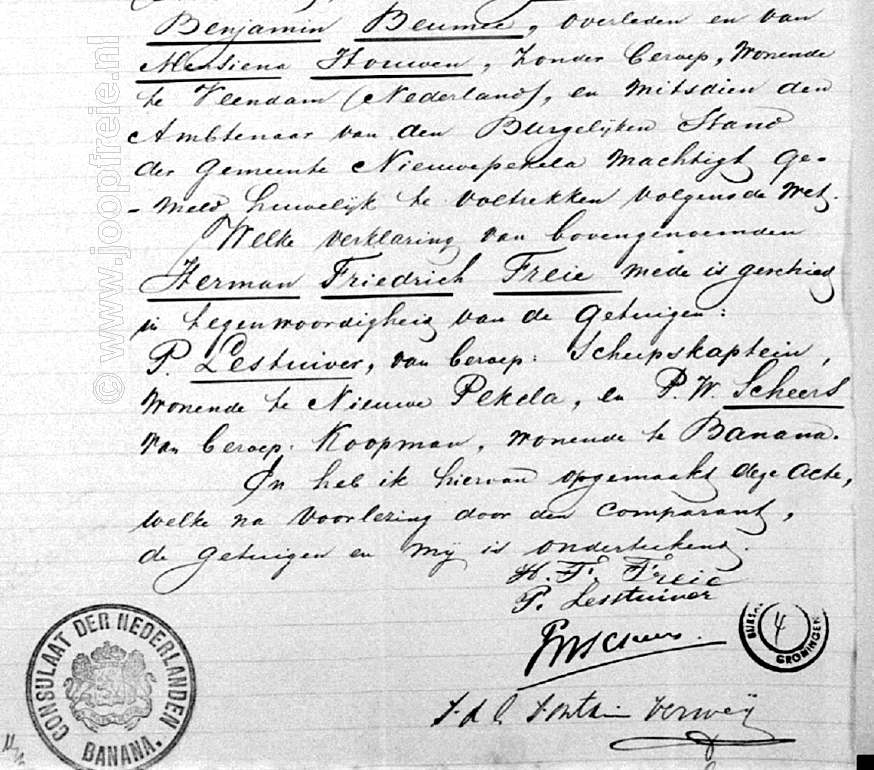 Benjamin Beumee, overleden en van
Mensiena Houwen, zonder beroep, wonende
te Veendam (Nederland), en mitsdien den
Ambtenaar van den Burgelijken Stand
der Gemeente Nieuwepekela machtigt ge-
-meld huwelijk te voltrekken volgens de Wet.
Welke verklaring van bovengenoemden
Herman Friedrich Freie mede is geschied
in tegenwoordigheid van de getuigen:
P. Lestuiver, van beroep: Scheepskaptein,
wonende te Nieuwe Pekela, en P. W. Scheers
van beroep: Koopman, wonende te Banana.
En heb ik hiervan opgemaakt deze acte,
welke na voorlezing door den comparant,
de getuigen en mij is onderteekend.
H. F. Freie
P. Lesstuiver
PWScheers
Fontein Verweij
CONSULAAT DER NEDERLANDEN
BANANA.
4
GRONINGEN
© www.joopfreie.nl